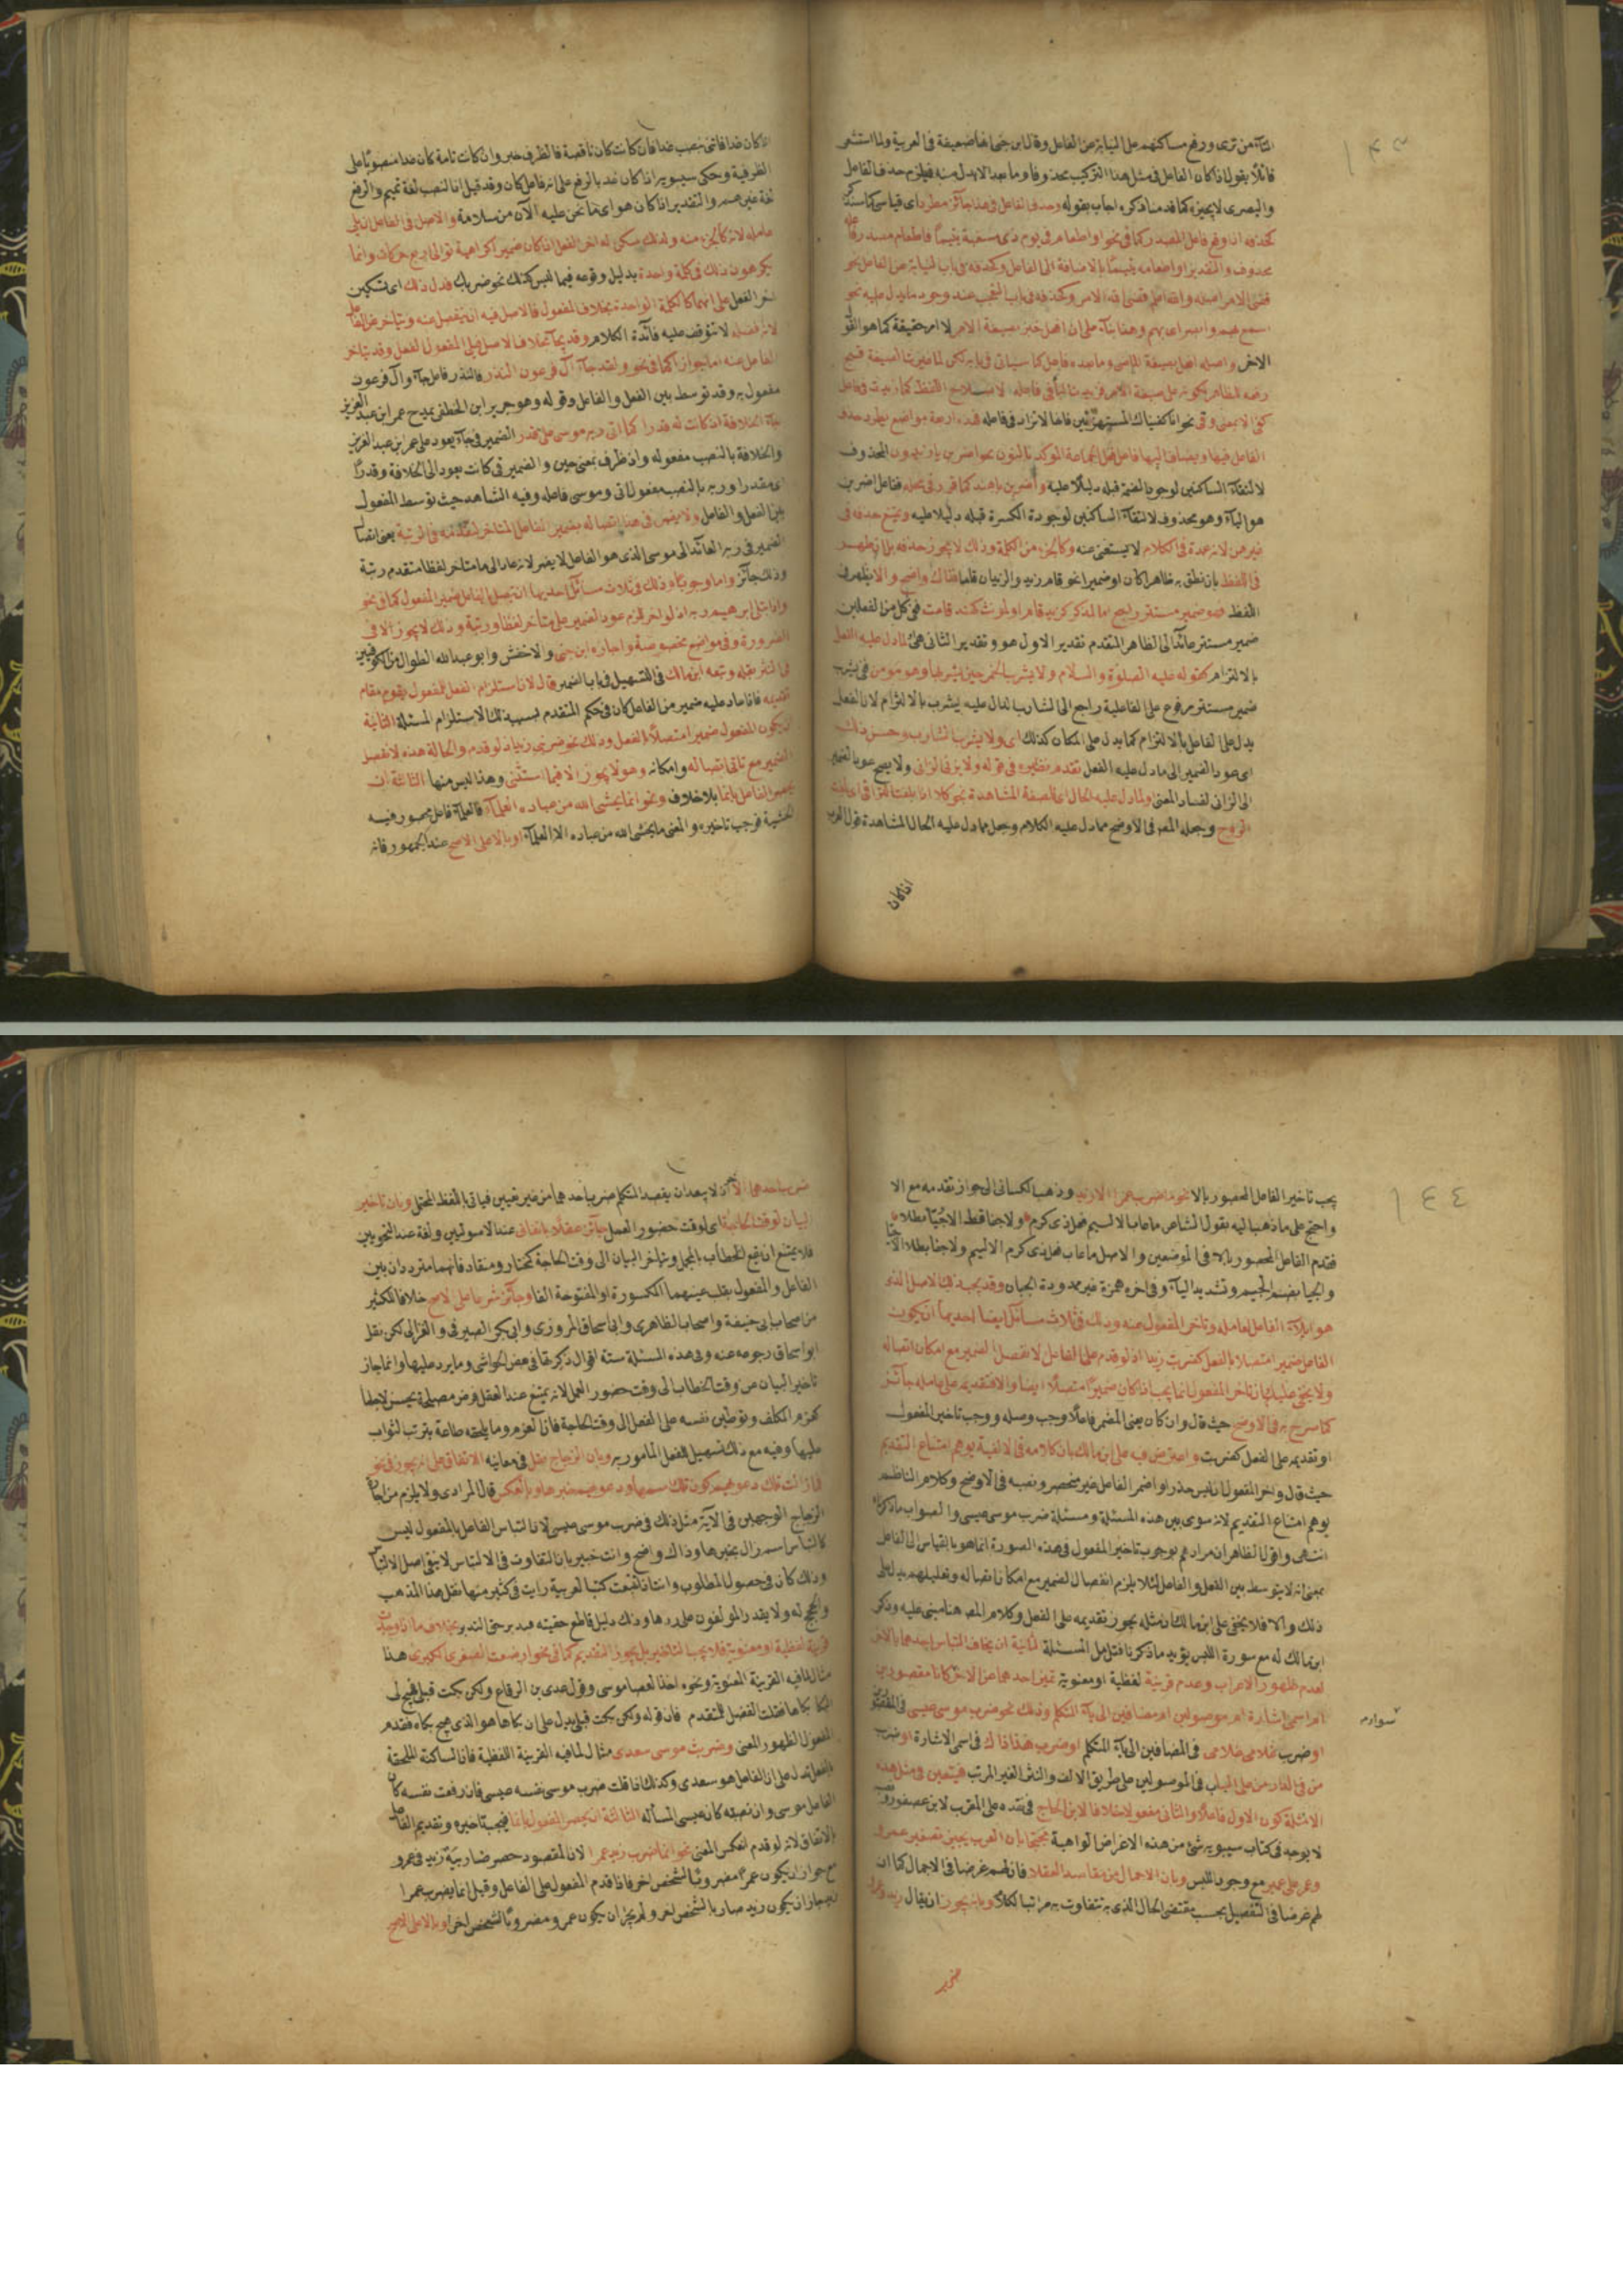 ١٤٣
التاء من ترى ورفع مساكنهم على النيابة عن الفاعل وقال ابن جنى انها ضعيفة في العربية ولما استشعر
قائلا يقول اذا كان الفاعل في مثل هذا التركيب محذوفا وما بعد الا بدل منه فيلزم حذف الفاعل
والبصرى لا يجيزه كما قدمنا ذكره اجاب بقوله وحذف الفاعل في هذا جائز مطرد اى قياسى كما
كحذفه اذا وقع فاعل المصدر كما في نحو او اطعام في يوم ذى مسغبة يتيما فاطعام مصدر فاعله
محذوف والتقدير او اطعامه يتيما بالاضافة الى الفاعل وكحذفه في باب النيابة عن الفاعل نحو
قضى الامر اصله والله اعلم قضى الله الامر وكحذفه في باب التعجب عند وجود ما يدل عليه نحو
اسمع بهم وابصر اى بهم وهذا بناء على ان افعل خبر بصيغة الامر لا امر حقيقة كما هو القول
الاخر واصله افعل بصيغة الماضى وما بعده فاعل كما سياتى في بابه لكن لما غيرت الصيغة قبح
رفعه الظاهر لكونه على صيغة الامر فزيدت الباء في فاعله لاصلاح اللفظ كما زيدت في فاعل
كفى الا بمعنى وقى نحو انا كفيناك المستهزئين فانها لا تزاد في فاعله فهذه اربعة مواضع يطرد حذف
الفاعل فيها ويضاف اليها فاعل فعل الجماعة الموكد بالنون نحو اضربن يا زيدون المحذوف
لالتقاء الساكنين لوجود الضمة قبله دليلا عليه واضربن يا هند كما قرر في محله ففاعل اضربن
هو الياء وهو محذوف لالتقاء الساكنين لوجود الكسرة قبله دليلا عليه ويمتنع حذفه في
غيرهن لانه عمدة في الكلام لا يستغنى عنه وكالجزء من الكلمة وذلك لا يجوز حذفه بل ان ظهر
في اللفظ بان نطق به ظاهرا كان او ضميرا نحو قام زيد والزيدان قاما فذاك واضح والا يظهر في
اللفظ فهو ضمير مستتر راجع اما لمذكور كزيد قام او لمونث كهند قامت في كل من الفعلين
ضمير مستتر عائد الى الظاهر المتقدم تقدير الاول هو وتقدير الثانى هى او لما دل عليه الفعل
بالالتزام كقوله عليه الصلوة والسلام ولا يشرب الخمر حين يشربها وهو مومن ففي يشرب
ضمير مستتر مرفوع على الفاعلية راجع الى الشارب الدال عليه يشرب بالالتزام لان الفعل
يدل على الفاعل بالالتزام كما يدل على المكان كذلك اى ولا يشرب الشارب وحسن ذلك
اى عود الضمير الى ما دل عليه الفعل تقدم نظيره في قوله ولا يزنى الزانى ولا يصح عود الضمير
الى الزانى لفساد المعنى او لما دل عليه الحال اى الصفة المشاهدة نحو كلا اذا بلغت التراقى اى بلغت
الروح وجعله المص في الاوضح مما دل عليه الكلام وجعل مما دل عليه الحال المشاهدة قول العرب
اذا كان
اذا كان غدا فاتنى بنصب غدا فان كانت كان ناقصة فالظرف خبر وان كانت تامة كان غدا منصوبا على
الظرفية وحكى سيبويه اذا كان غد بالرفع على انه فاعل كان وقد قيل ان النصب لغة تميم والرفع
لغة غيرهم والتقدير اذا كان هو اى ما نحن عليه الآن من سلامة والاصل في الفاعل ان يلى
عامله لانه كالجزء منه ولذلك سكن له اخر الفعل اذا كان ضميرا كراهية توالى اربع حركات وانما
يكرهون ذلك في كلمة واحدة بدليل وقوعه فيما ليس كذلك نحو ضربك فدل ذلك اى تسكين
اخر الفعل على انهما كالكلمة الواحدة بخلاف المفعول فالاصل فيه ان ينفصل عنه ويتاخر عن الفاعل
لانه فضلة لا تتوقف عليه فائدة الكلام وقد يجاء بخلاف الاصل فيلى المفعول الفعل وقد يتاخر
الفاعل عنه اما جوازا كما في نحو ولقد جاء آل فرعون النذر فالنذر فاعل جاء وآل فرعون
مفعول به وقد توسط بين الفعل والفاعل وقوله وهو جرير ابن الخطفى يمدح عمر ابن عبد العزيز
جاء الخلافة اذ كانت له قدرا كما اتى ربه موسى على قدر الضمير في جاء يعود على عمر بن عبد العزيز
والخلافة بالنصب مفعوله واذ ظرف بمعنى حين والضمير في كانت يعود الى الخلافة وقدرا
اى مقدرا وربه بالنصب مفعول اتى وموسى فاعله وفيه الشاهد حيث توسط المفعول
بين الفعل والفاعل ولا يضر في هذا اتصاله بضمير الفاعل المتاخر لتقدمه في الرتبة يعنى اتصال
الضمير في ربه العائد الى موسى الذى هو الفاعل لا يضر لانه عاد الى ما متاخر لفظا متقدم رتبة
وذلك جائز واما وجوبا وذلك في ثلاث مسائل احديها ان يتصل بالفاعل ضمير المفعول كما في نحو
واذ ابتلى ابرهيم ربه اذ لو اخر لزم عود الضمير على متاخر لفظا ورتبة وذلك لا يجوز الا في
الضرورة وفي مواضع مخصوصة واجازه ابن جنى والاخفش وابو عبد الله الطوال من الكوفيين
في النثر بقلة وتبعه ابن مالك في التسهيل في باب الضمير قال لان استلزام الفعل للمفعول يقوم مقام
تقديمه فاذا عاد عليه ضمير من الفاعل كان في حكم المتقدم بسببه ذلك الاستلزام المسئلة الثانية
ان يكون المفعول ضميرا متصلا بالفعل وذلك نحو ضربنى زيد اذ لو قدم والحالة هذه لانفصل
الضمير مع تاتى اتصاله وامكانه وهو لا يجوز الا فيما استثنى وهذا ليس منها الثالثة ان
يحصر الفاعل بانما بلا خلاف ونحو انما يخشى الله من عباده العلماء فالعلماء فاعل محصور فيه
الخشية فوجب تاخيره والمعنى ما يخشى الله من عباده الا العلماء او بالا على الاصح عند الجمهور فانه
١٤٤
يجب تاخير الفاعل المحصور بالا نحو ما ضرب عمرا الا زيد وذهب الكسائى الى جواز تقدمه مع الا
واحتج على ما ذهب اليه بقول الشاعر ما عاب الا لئيم فعل ذى كرم ولا جفا قط الا جبأ بطلا
فقدم الفاعل المحصور بالا في الموضعين والاصل ما عاب فعل ذى كرم الا لئيم ولا جفا بطلا الا جبأ
والجبأ بضم الجيم وتشديد الباء وفي اخره همزة غير ممدودة الجبان وقد يجب ذلك الاصل الذى
هو ايلاء الفاعل لعامله وتاخر المفعول عنه وذلك في ثلاث مسائل ايضا احديها ان يكون
الفاعل ضميرا متصلا بالفعل كضربت زيدا اذ لو قدم على الفاعل لانفصل الضمير مع امكان اتصاله
ولا يخفى عليك ان تاخر المفعول انما يجب اذا كان ضميرا متصلا ايضا والا فتقديمه على عامله جائز
كما صرح به في الاوضح حيث قال وان كان يعنى المضمر فاعلا وجب وصله ووجب تاخير المفعول
او تقديمه على الفعل كضربت واعترض فيه على ابن مالك بان كلامه في الالفية يوهم امتناع التقديم
حيث قال واخر المفعول ان لبس حذر او اضمر الفاعل غير منحصر ونصه في الاوضح وكلام الناظم
يوهم امتناع التقديم لانه سوى بين هذه المسئلة ومسئلة ضرب موسى عيسى والصواب ما ذكرنا
انتهى واقول الظاهر ان مرادهم بوجوب تاخير المفعول في هذه الصورة انما هو بالقياس الى الفاعل
بمعنى انه لا يتوسط بين الفعل والفاعل لئلا يلزم انفصال الضمير مع امكان اتصاله وتعليلهم يدل على
ذلك والا فلا يخفى على ابن مالك ان مثله يجوز تقديمه على الفعل وكلام المص هنا مبنى عليه وذكر
ابن مالك له مع صورة اللبس يؤيد ما ذكرنا فتامل المسئلة الثانية ان يخاف التباس احدهما بالاخر
لعدم ظهور الاعراب وعدم قرينة لفظية او معنوية تميز احدهما عن الاخر كانا مقصورين
ام اسمى اشارة ام موصولين ام مضافين الى ياء المتكلم وذلك نحو ضرب موسى عيسى في المقصور
سوادم
او ضرب غلامى غلامى في المضافين الى ياء المتكلم او ضرب هذا ذاك في اسمى الاشارة او ضرب
من في الدار من على الباب في الموصولين على طريق الالف والنشر الغير المرتب فيتعين في مثل هذه
الامثلة كون الاول فاعلا والثانى مفعولا خلافا لابن الحاج في نقده على المقرب لابن عصفور
لا يوجد في كتاب سيبويه شئ من هذه الاغراض الواهية محتجا بان العرب يجيز تصغير عمرو
وعمر على عمير مع وجود اللبس وبان الاجمال من مقاصد العقلاء فان لهم غرضا في الاجمال كما ان
لهم غرضا في التفصيل بحسب مقتضى الحال الذى به تتفاوت به مراتب الكلام وبانه يجوز ان يقال زيد وعمرو
ضرب
ضرب احدهما الآخر لا يبعد ان يقصد المتكلم ضرب احدهما من غير تعيين فياتى باللفظ المحتمل وبان تاخير
البيان لوقت الحاجة اى لوقت حضور العمل جائز عقلا باتفاق عند الاصوليين ولغة عند النحويين
فلا يمتنع ان يقع الخطاب بالمجمل ويتاخر البيان الى وقت الحاجة كمختار ومنقاد فانهما مترددان بين
الفاعل والمفعول بقلب عينهما المكسورة او المفتوحة الفا وجائز شرعا على الاصح خلافا لكثير
من اصحاب ابى حنيفة واصحاب الظاهرى وابى اسحاق المروزى وابى بكر الصيرفى والغزالى لكن نقل
ابو اسحاق رجوعه عنه وفي هذه المسئلة ستة اقوال ذكرتها في بعض الحواشى وما يرد عليها وانما جاز
تاخير البيان عن وقت الخطاب الى وقت حضور العمل لانه يمتنع عند العقل وفرض مصلحة يحسن لاجلها
كعزم المكلف وتوطين نفسه على الفعل الى وقت الحاجة فان العزم وما يلحقه طاعة يترتب الثواب
عليها وفيه مع ذلك تسهيل للفعل المأمور به وبان الزجاج نقل في معانيه الاتفاق على انه يجوز في نحو
فما زالت تلك دعويهم كون تلك اسمها ودعويهم خبرها وبالعكس قال المرادى ولا يلزم من اجازة
الزجاج الوجهين في الآية مثل ذلك في ضرب موسى عيسى لان التباس الفاعل بالمفعول ليس
كالتباس اسم زال بخبرها وذاك واضح وانت خبير بان التفاوت في الالتباس لا ينفى اصل الالتباس
وذلك كان في حصول المطلوب وانت اذا تتبعت كتب العربية رايت في كثير منها نقل هذا المذهب
والحجج له ولا يقدر المولفون على ردها وذلك دليل قاطع حقيته فتدبر حق التدبر بخلاف ما اذا وجدت
قرينة لفظية او معنوية فلا يجب التاخير بل يجوز التقديم كما في نحو ارضعت الصغرى الكبرى هذا
مثال لما فيه القرينة المعنوية ونحوه اخذ العصا موسى وقول عدى بن الرقاع ولكن بكت قبلى فهيج لى
البكا بكاها فقلت الفضل للمتقدم فان قوله ولكن بكت قبلى يدل على ان بكاها هو الذى هيج بكاه فقدم
المفعول لظهور المعنى وضربت موسى سعدى مثال لما فيه القرينة اللفظية فان الساكنة الملحقة
بالفعل تدل على ان الفاعل هو سعدى وكذلك اذا قلت ضرب موسى نفسه عيسى فان رفعت نفسه كان
الفاعل موسى وان نصبته كان عيسى المسألة الثالثة ان يحصر المفعول بانما فيجب تاخيره وتقديم الفاعل
بالاتفاق لانه لو قدم انعكس المعنى نحو انما ضرب زيد عمرا لان المقصود حصر ضاربية زيد في عمرو
مع جواز ان يكون عمرا مضروبا لشخص اخر فاذا قدم المفعول على الفاعل وقيل انما يضرب عمرا
زيد جاز ان يكون زيد ضاربا لشخص اخر ولم يجز ان يكون عمرو مضروبا لشخص اخر او بالا على الاصح